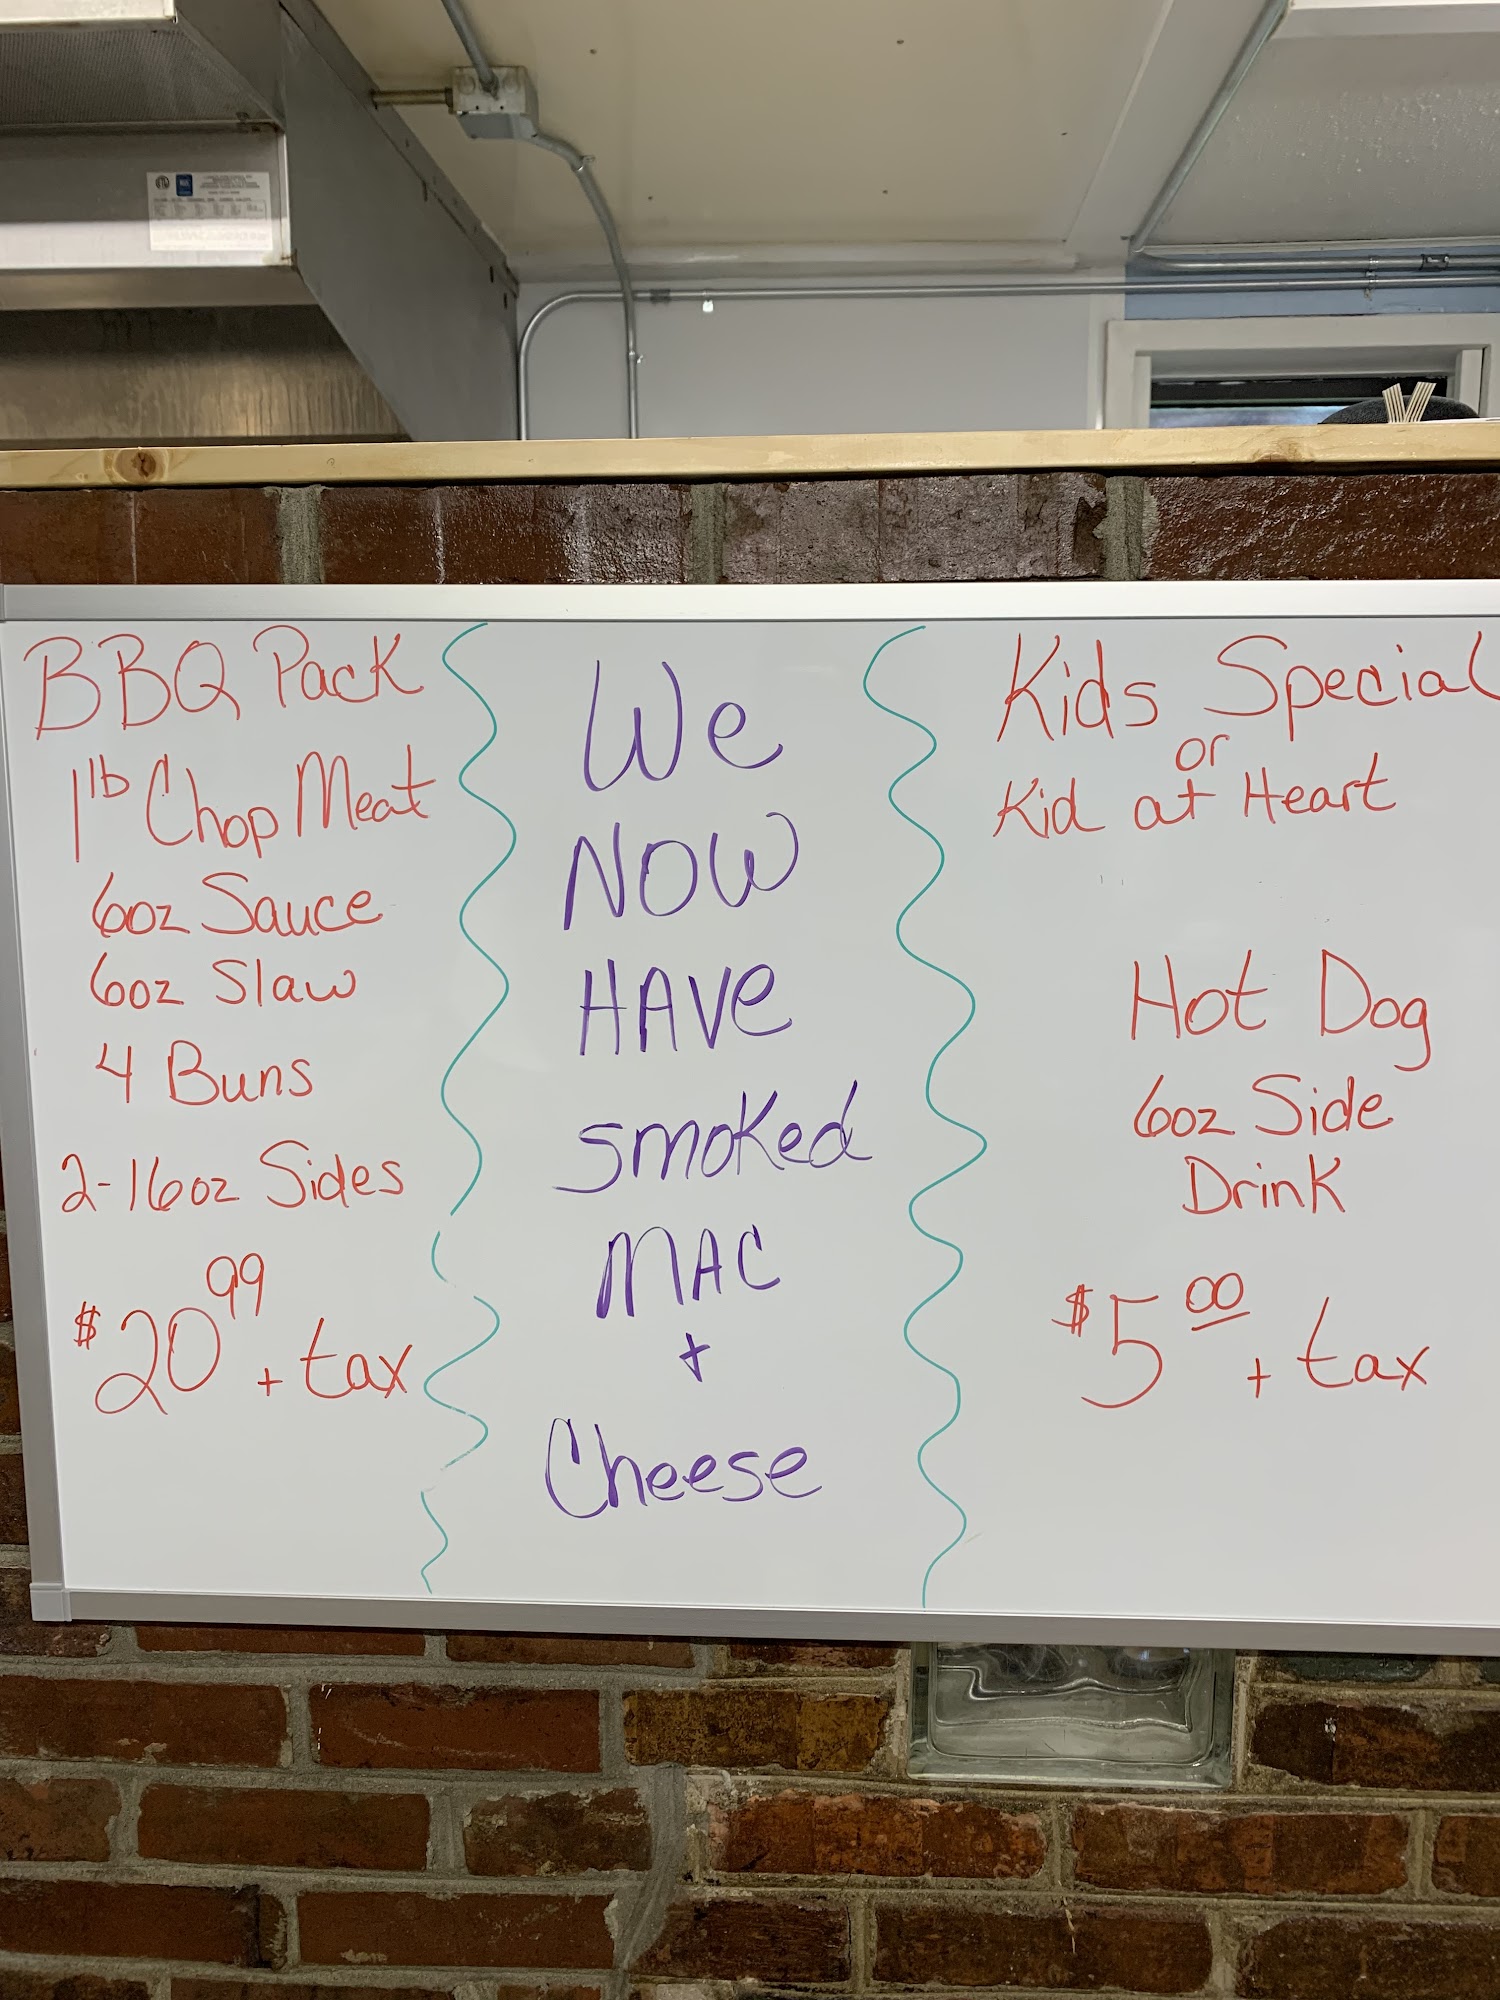 BBQ Pack
1lb Chop Meat
6oz Sauce
6oz Slaw
4 Buns
2-16oz Sides
$20.99 + tax
We
NOW
HAVe
smoked
MAC
+
Cheese
Kids Special
or
Kid at Heart
Hot Dog
6oz Side
Drink
$5.00 + tax